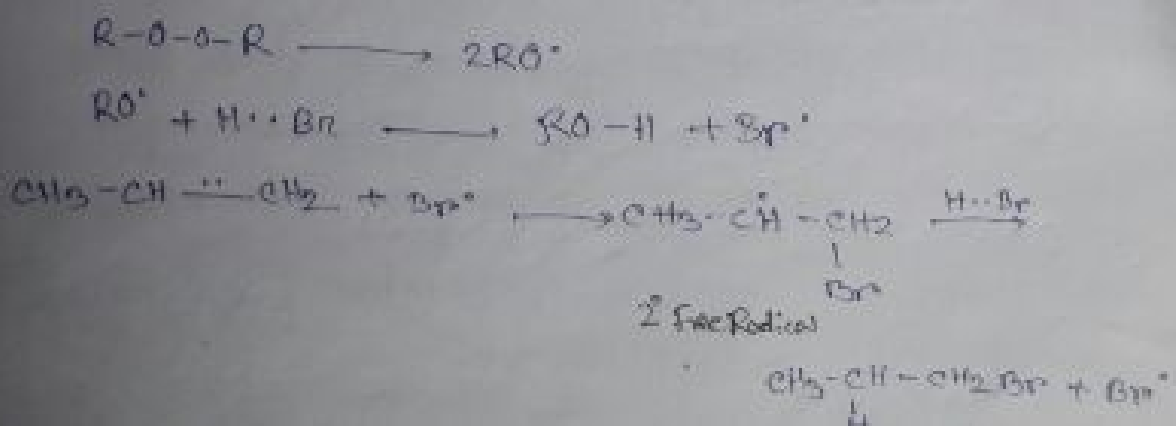 R-O-O-R ⟶ 2RO•
RO• + H••Br ⟶ RO-H + Br•
CH3-CH ⸚ CH2 + Br• ⟶ CH3-ĊH-CH2 H••Br ⟶
|
Br
2 Free Radical
CH3-CH-CH2Br + Br•
|
H